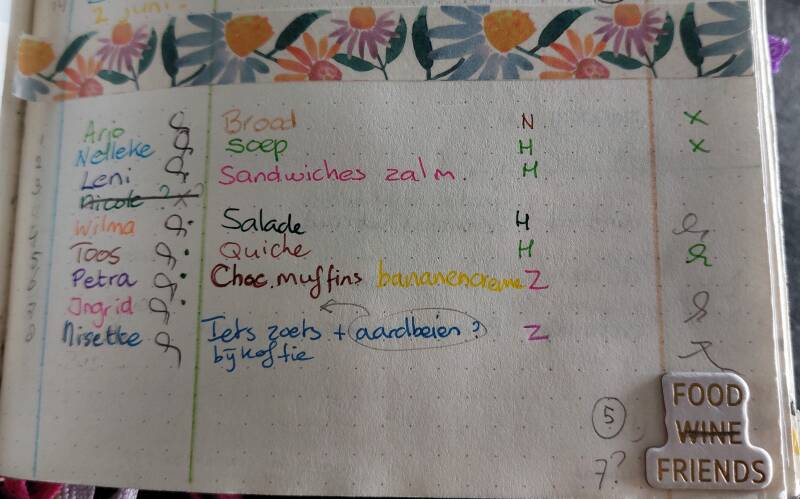 2 juni.
Arjo Brood N X
1 Nelleke soep H X
2 Leni Sandwiches zalm. H
3 Nicole ? X?
4 Wilma Salade H
5 Toos Quiche H
6 Petra Choc. muffins bananencreme Z
7 Ingrid
8 Lisette Iets zoets + aardbeien? Z
bij koffie
5
7?
FOOD
WINE
FRIENDS